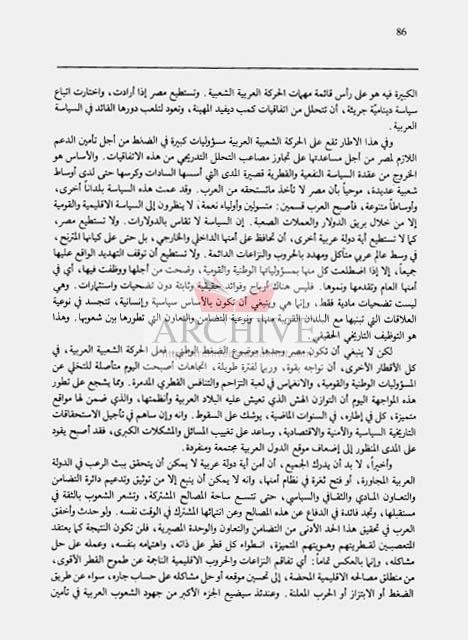 86
الكبيرة فيه هو على رأس قائمة مهمات الحركة العربية الشعبية . وتستطيع مصر إذا أرادت، واختارت اتباع
سياسة دينامية جريئة، أن تتحلل من اتفاقيات كمب ديفيد المهينة، وتعود لتلعب دورها القائد في السياسة
العربية .
وفي هذا الاطار تقع على الحركة الشعبية العربية مسؤوليات كبيرة في الضغط من أجل تأمين الدعم
اللازم لمصر من أجل مساعدتها على تجاوز مصاعب التحلل التدريجي من هذه الاتفاقيات. والأساس هو
الخروج من عقدة السياسة النفعية والقطرية قصيرة المدى التي أسسها السادات وكرسها حتى لدى أوساط
شعبية عديدة، موحياً بأن مصر لا تأخذ ماتستحقه من العرب. وقد عمت هذه السياسة بلداناً أخرى،
وأوساطاً متنوعة، فأصبح العرب قسمين: متسولين وأولياء نعمة، لا ينظرون إلى السياسة الاقليمية والقومية
إلا من خلال بريق الدولار والعملات الصعبة. إن السياسة لا تقاس بالدولارات. ولا تستطيع مصر،
كما لا تستطيع أية دولة عربية أخرى، أن تحافظ على أمنها الداخلي والخارجي، بل حتى على كيانها المترنح،
في وسط عالم عربي متآكل ومهدد بالحروب والنزاعات الدائمة. ولا تستطيع أن توقف التهديد الواقع عليها
جميعاً، إلا إذا اضطلعت كل منها بمسؤولياتها الوطنية والقومية، وضحت من أجلها ووظفت فيها، أي في
أمنها العام وتقدمها ونموها. فليس هناك أرباح وفوائد حقيقية وثابتة دون تضحيات واستثمارات. وهي
ليست تضحيات مادية فقط، وإنما هي وينبغي أن تكون بالأساس سياسية وإنسانية، تتجسد في نوعية
العلاقات التي تبنيها مع البلدان القريبة منها، ونوعية التضامن والتعاون التي تطورها بين شعوبها. وهذا
هو التوظيف التاريخي الحقيقي.
ARCHIVE
لكن لا ينبغي أن تكون مصر وحدها موضوع الضغط الوطني. فعلى الحركة الشعبية العربية، في
كل الأقطار الأخرى، أن تواجه بقوة، وربما لفترة طويلة، اتجاهات أصبحت اليوم متأصلة للتخلي عن
المسؤوليات الوطنية والقومية، والانغماس في لعبة التزاحم والتنافس القطري المدمرة. ومما يشجع على تطور
هذه المواجهة اليوم أن التوازن الهش الذي تعيش عليه البلاد العربية وأنظمتها، والذي ضمن لها مواقع
متميزة، كل في إطاره، في السنوات الماضية، يوشك على السقوط. وانه وإن ساهم في تأجيل الاستحقاقات
التاريخية السياسية والأمنية والاقتصادية، وساعد على تغييب المسائل والمشكلات الكبرى، فقد أصبح يقود
على المدى المنظور إلى إضعاف موقع الدول العربية مجتمعة ومنفردة.
وأخيراً، لا بد أن يدرك الجميع، أن أمن أية دولة عربية لا يمكن أن يتحقق ببث الرعب في الدولة
العربية المجاورة، أو فتح ثغرة في نظام أمنها، وانه لا يمكن أن ينبع إلا من توثيق وتدعيم دائرة التضامن
والتعاون المادي والثقافي والسياسي، حتى تتسع ساحة المصالح المشتركة، وتشعر الشعوب بالثقة في
مستقبلها، وتجد فائدة في الدفاع عن هذه المصالح وعن انتمائها المشترك في الوقت نفسه. ولو حدث وأخفق
العرب في تحقيق هذا الحد الأدنى من التضامن والتعاون والوحدة المصيرية، فلن تكون النتيجة كما يعتقد
المتعصبين لقطريتهم وهويتهم المتميزة، انطواء كل قطر على ذاته، واهتمامه بنفسه، وعمله على حل
مشاكله، وإنما بالعكس تماماً: أي تفاقم النزاعات والحروب الاقليمية الناجمة عن طموح القطر الأقوى،
من منطلق مصالحه الاقليمية المحضة، إلى تحسين موقعه أو حل مشاكله على حساب جاره، سواء عن طريق
الضغط أو الابتزاز أو الحرب المعلنة. وعندئذ سيضيع الجزء الأكبر من جهود الشعوب العربية في تأمين